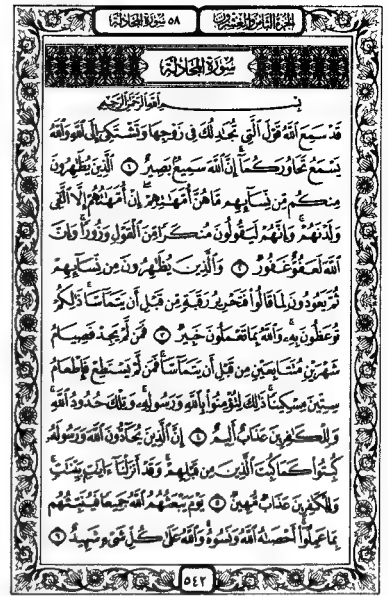 الجزء الثامن والعشرون
٥٨ سورة المجادلة
سورة المجادلة
بسم الله الرحمن الرحيم
قَدْ سَمِعَ اللَّهُ قَوْلَ الَّتِي تُجَادِلُكَ فِي زَوْجِهَا وَتَشْتَكِي إِلَى اللَّهِ وَاللَّهُ
يَسْمَعُ تَحَاوُرَكُمَا إِنَّ اللَّهَ سَمِيعٌ بَصِيرٌ ١ الَّذِينَ يُظَاهِرُونَ
مِنكُم مِّن نِّسَائِهِم مَّا هُنَّ أُمَّهَاتِهِمْ إِنْ أُمَّهَاتُهُمْ إِلَّا الَّٰئِي
وَلَدْنَهُمْ وَإِنَّهُمْ لَيَقُولُونَ مُنكَرًا مِّنَ الْقَوْلِ وَزُورًا وَإِنَّ
اللَّهَ لَعَفُوٌّ غَفُورٌ ٢ وَالَّذِينَ يُظَاهِرُونَ مِن نِّسَائِهِمْ
ثُمَّ يَعُودُونَ لِمَا قَالُوا فَتَحْرِيرُ رَقَبَةٍ مِّن قَبْلِ أَن يَتَمَاسَّا ذَٰلِكُمْ
تُوعَظُونَ بِهِ وَاللَّهُ بِمَا تَعْمَلُونَ خَبِيرٌ ٣ فَمَن لَّمْ يَجِدْ فَصِيَامُ
شَهْرَيْنِ مُتَتَابِعَيْنِ مِن قَبْلِ أَن يَتَمَاسَّا فَمَن لَّمْ يَسْتَطِعْ فَإِطْعَامُ
سِتِّينَ مِسْكِينًا ذَٰلِكَ لِتُؤْمِنُوا بِاللَّهِ وَرَسُولِهِ وَتِلْكَ حُدُودُ اللَّهِ
وَلِلْكَافِرِينَ عَذَابٌ أَلِيمٌ ٤ إِنَّ الَّذِينَ يُحَادُّونَ اللَّهَ وَرَسُولَهُ
كُبِتُوا كَمَا كُبِتَ الَّذِينَ مِن قَبْلِهِمْ وَقَدْ أَنزَلْنَا آيَاتٍ بَيِّنَاتٍ
وَلِلْكَافِرِينَ عَذَابٌ مُّهِينٌ ٥ يَوْمَ يَبْعَثُهُمُ اللَّهُ جَمِيعًا فَيُنَبِّئُهُم
بِمَا عَمِلُوا أَحْصَاهُ اللَّهُ وَنَسُوهُ وَاللَّهُ عَلَىٰ كُلِّ شَيْءٍ شَهِيدٌ ٦
٥٤٢